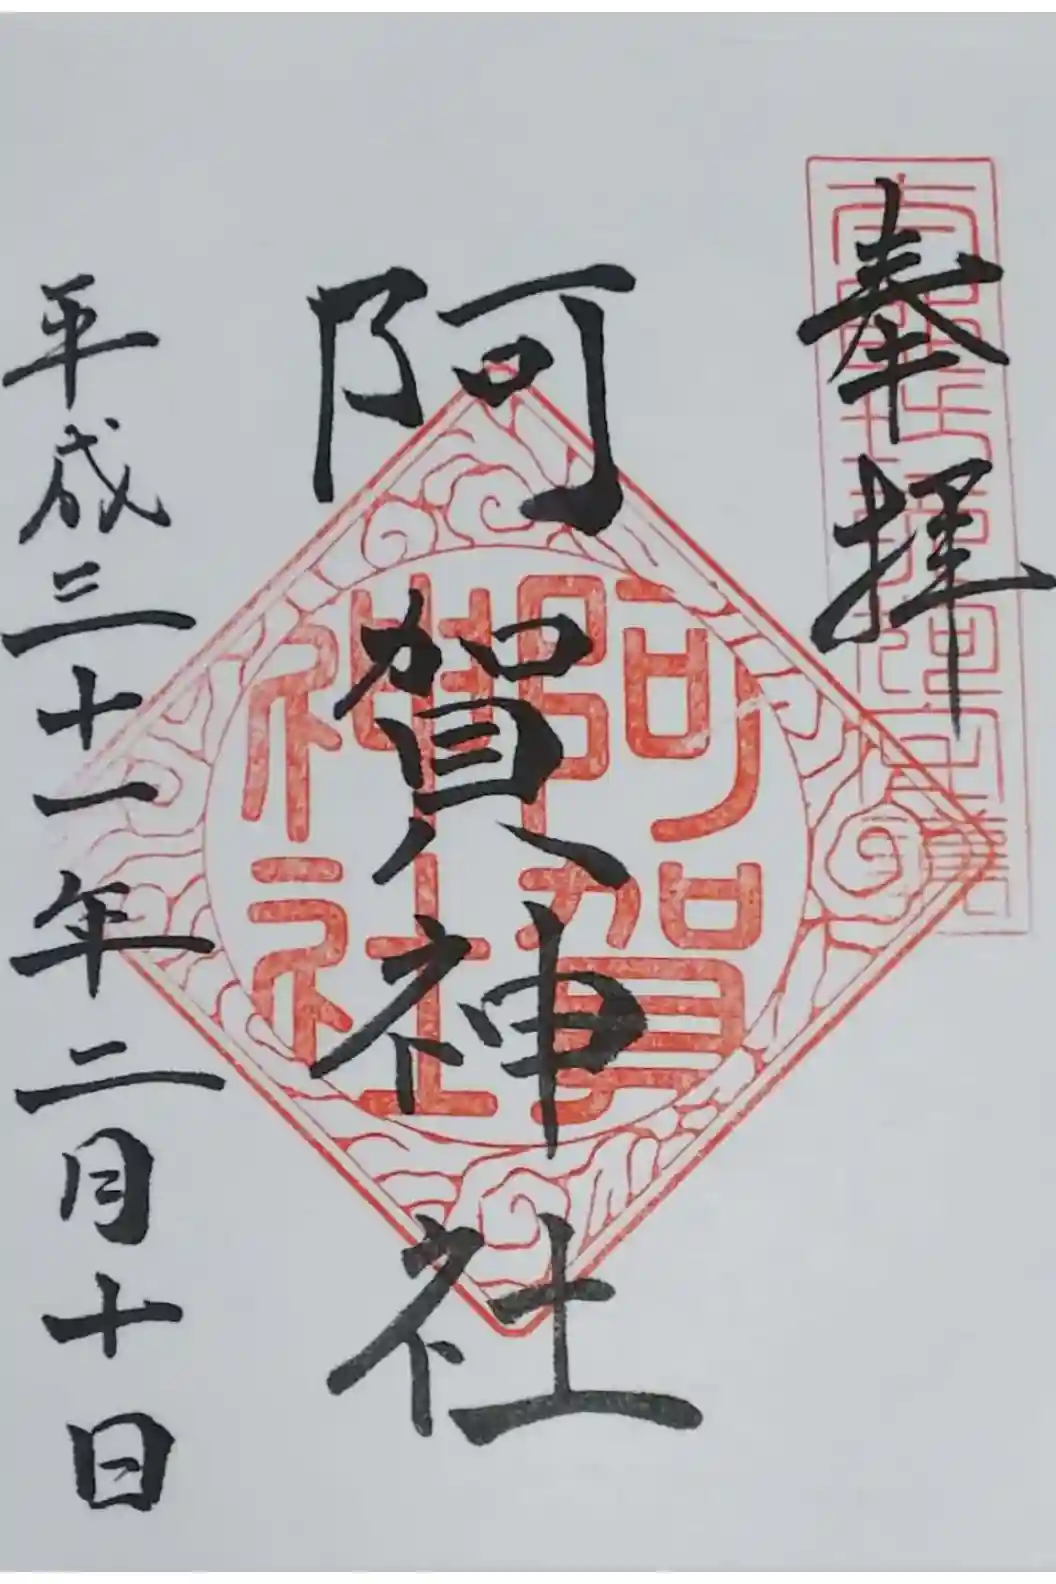 奉拝
阿賀神社
平成三十一年二月十日
阿賀
神社